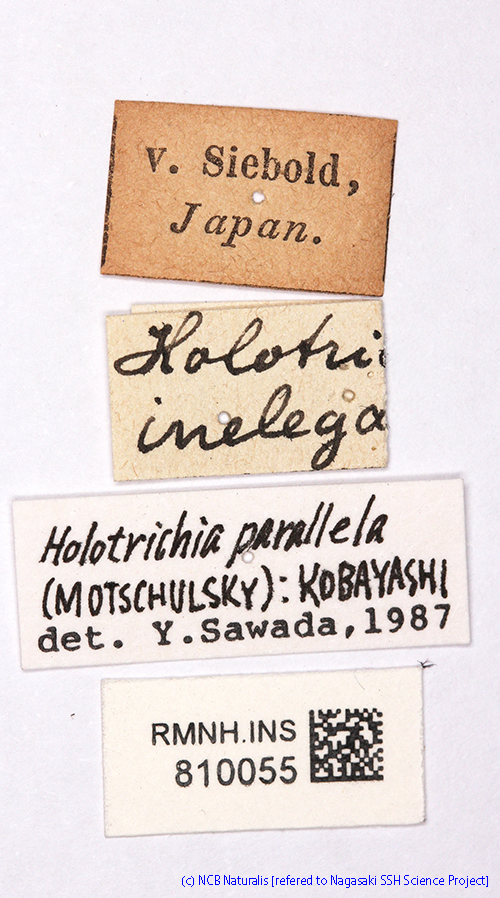 v. Siebold,
Japan.
Holotri
inelega
Holotrichia parallela
(MOTSCHULSKY): KOBAYASHI
det. Y.Sawada,1987
RMNH.INS
810055
(c) NCB Naturalis [refered to Nagasaki SSH Science Project]